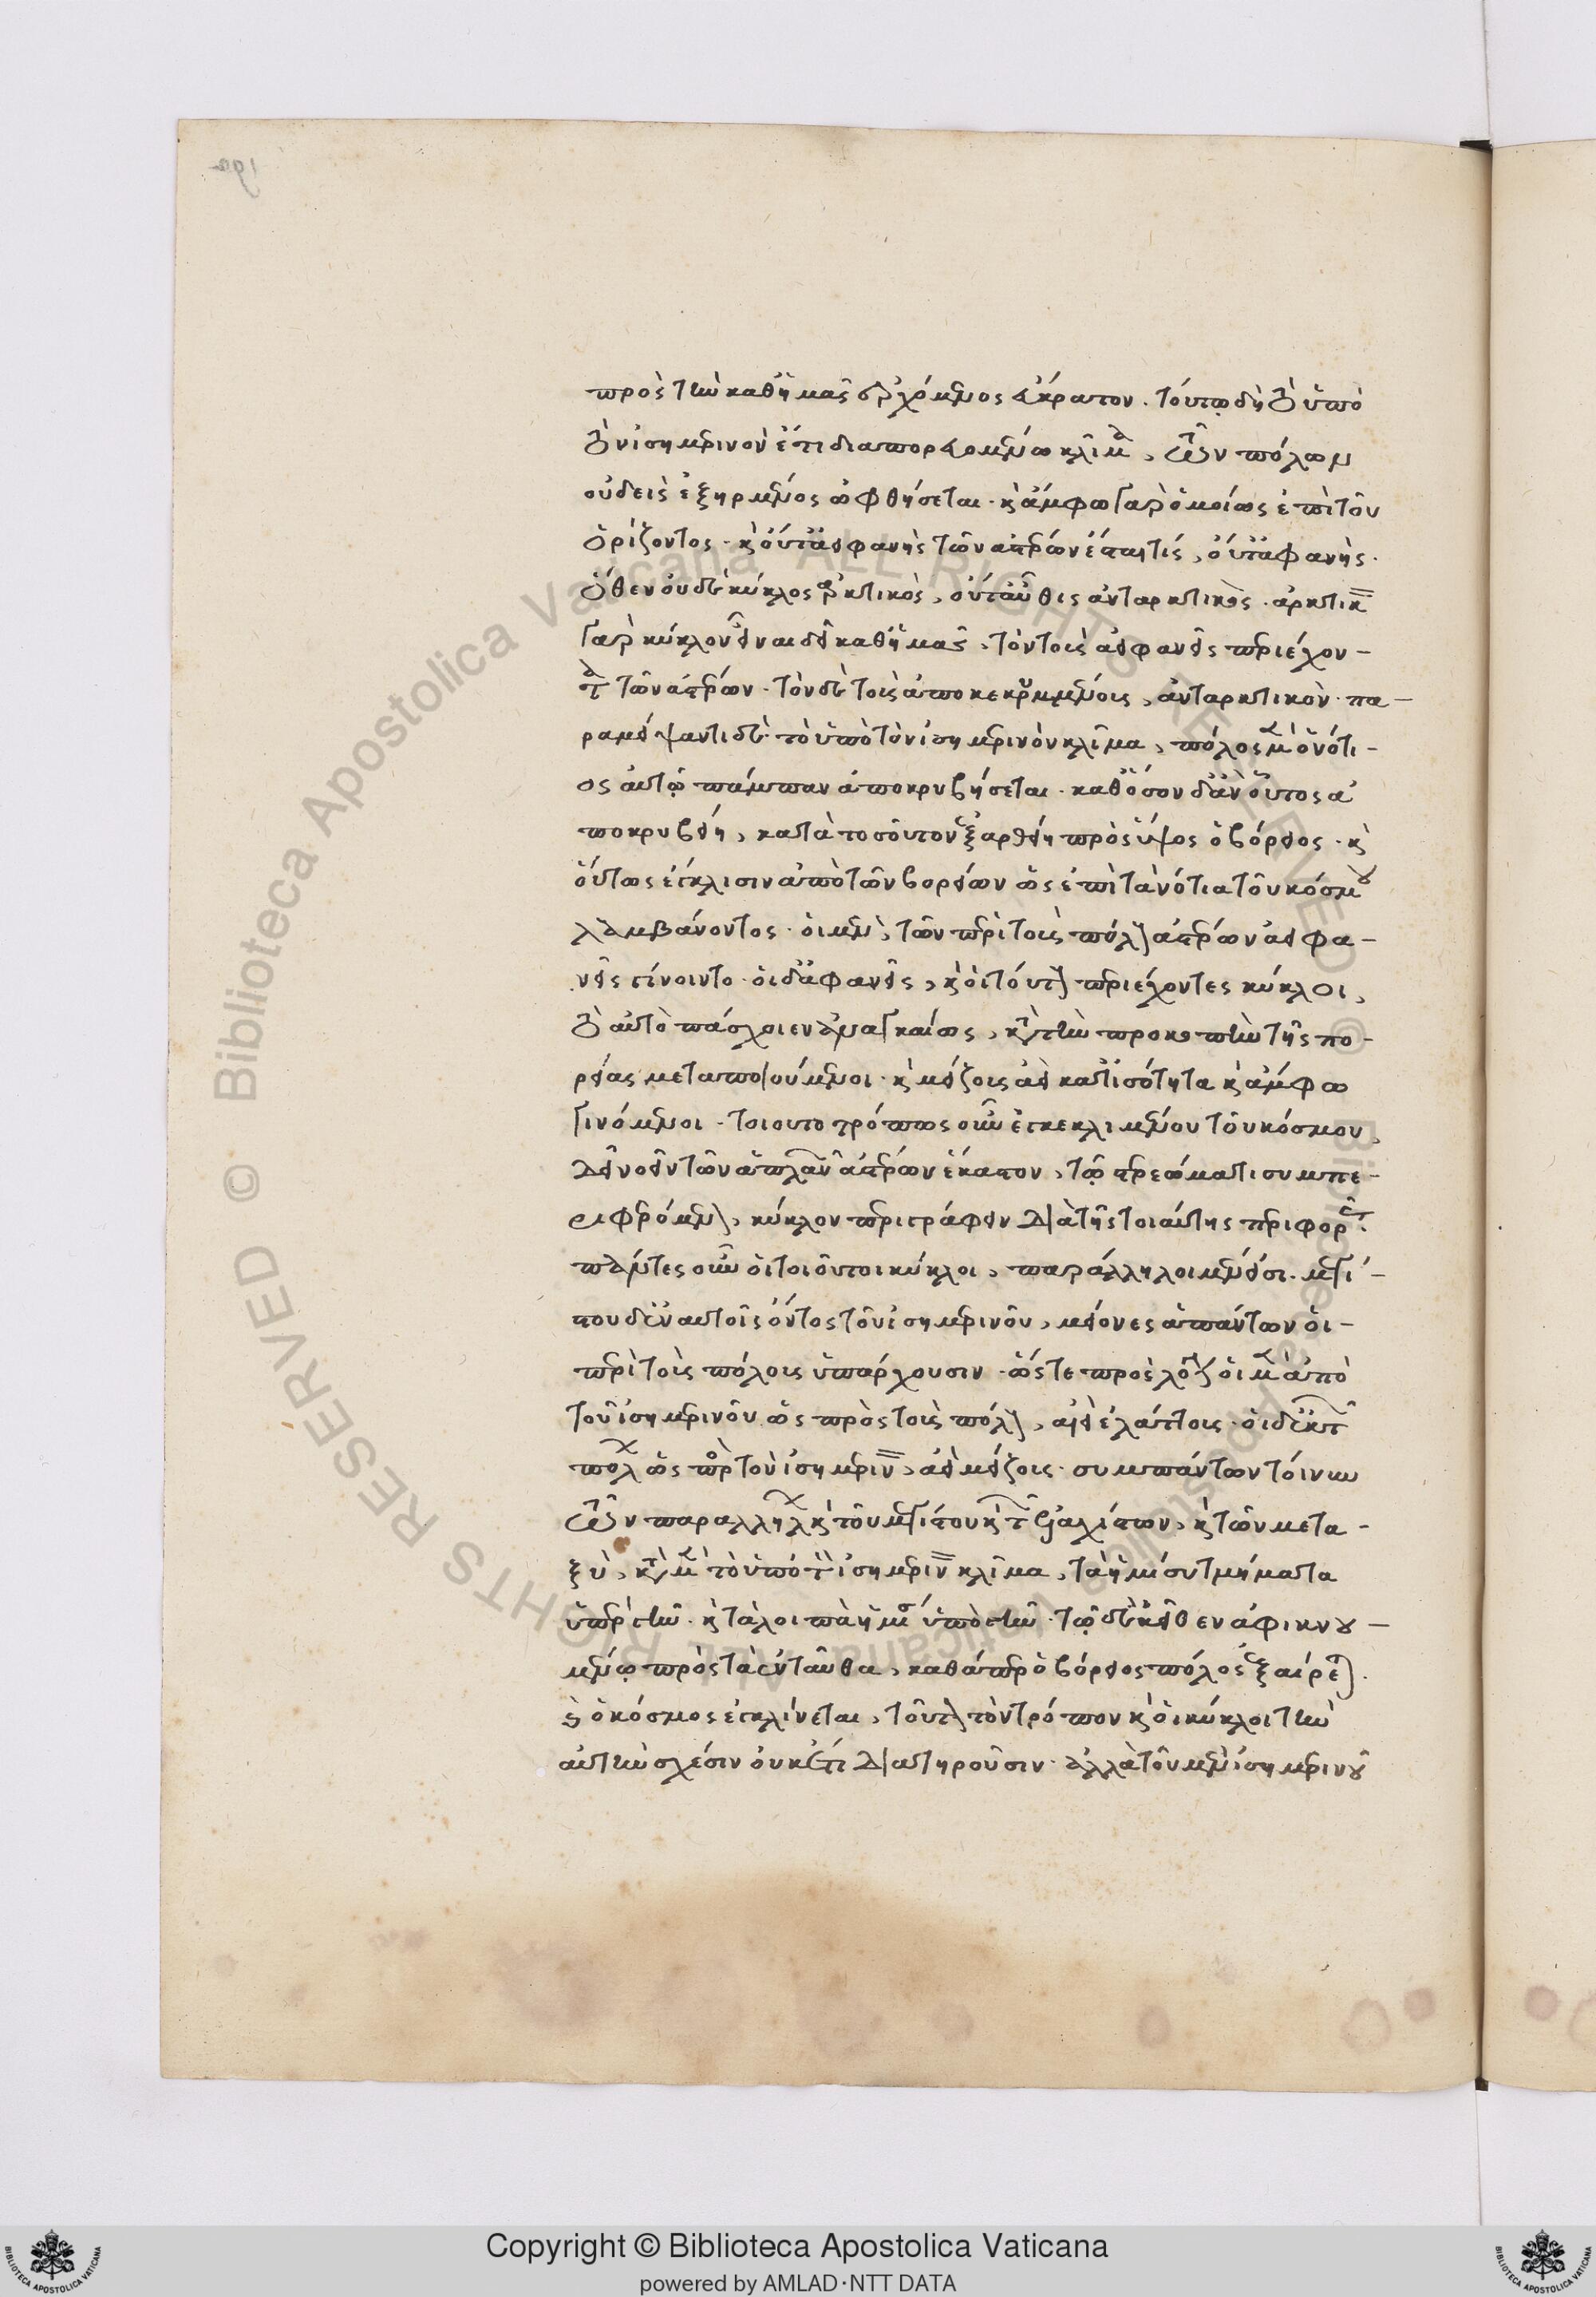 πρὸς τὴν καθ' ἡμᾶς ἐρχόμενος εὔκρατον. τούτῳ δὴ τῷ ὑπὸ
τὸν ἰσημερινὸν ἔτι διαπορευομένῳ κλίμα, τῶν πόλων
οὐδεὶς ἐξηρμένος ὀφθήσεται. καὶ ἄμφω γὰρ ὁμοίως ἐπὶ τοῦ
ὁρίζοντος. καὶ οὔτ' ἀειφανὴς τῶν ἀστέρων ἐστί τις, οὔτ' ἀφανής.
ὅθεν οὐδὲ κύκλος ἀρκτικὸς, οὔτ' αὖθις ἀνταρκτικός. ἀρκτικὸν
γὰρ κύκλον εἶναι δεῖ καθ' ἡμᾶς, τὸν τοὺς ἀειφανεῖς περιέχον-
τα τῶν ἀστέρων. τὸν δὲ τοὺς ἀποκεκρυμμένους, ἀνταρκτικόν. πα-
ραμείψαντι δὲ τὸ ὑπὸ τὸν ἰσημερινὸν κλίμα, πόλος μὲν ὁ νότι-
ος αὐτῷ πάμπαν ἀποκρυβήσεται. καθ' ὅσον δ' ἂν οὗτος ἀ
ποκρυβείη, κατὰ τοσοῦτον ἐξαρθείη πρὸς ὕψος ὁ βόρειος. καὶ
οὕτως ἔγκλισιν ἀπὸ τῶν βορείων ὡς ἐπὶ τὰ νότια τοῦ κόσμου
λαμβάνοντος. οἱ μὲν, τῶν περὶ τοὺς πόλους ἀστέρων ἀειφα-
νεῖς γίνοιντο. οἱ δ' ἀφανεῖς, καὶ οἱ τούτους περιέχοντες κύκλοι,
τὸ αὐτὸ πάσχοιεν ἀναγκαίως, κατὰ τὴν προκοπὴν τῆς πο-
ρείας μεταποιούμενοι. καὶ μείζους ἀεὶ κατ' ἰσότητα καὶ ἄμφω
γινόμενοι. τοιουτοτρόπως οὖν ἐγκεκλιμένου τοῦ κόσμου,
δεῖ νοεῖν τῶν ἀπλανῶν ἀστέρων ἕκαστον, τῷ στερεώματι συμπε-
ριφερόμενον, κύκλον περιγράφειν διὰ τῆς τοιαύτης περιφορᾶς.
πάντες οὖν οἱ τοιοῦτοι κύκλοι, παράλληλοι μέν εἰσι. μεγί-
στου δ' ἐν αὐτοῖς ὄντος τοῦ ἰσημερινοῦ, μείονες ἁπάντων οἱ
περὶ τοὺς πόλους ὑπάρχουσιν. ὥστε πρὸς λόγον οἱ μὲν ἀπὸ
τοῦ ἰσημερινοῦ ὡς πρὸς τοὺς πόλους, ἀεὶ ἐλάττους. οἱ δ' ἐκ τῶν
πόλων ὡς πρὸς τὸν ἰσημερινὸν, ἀεὶ μείζους. συμπάντων τοίνυν
τῶν παραλλήλων καὶ τοῦ μεγίστου καὶ τῶν ἐλαχίστων, καὶ τῶν μετα-
ξὺ, κατὰ μὲν τὸ ὑπὸ τὸν ἰσημερινὸν κλίμα, τὰ ἥμισυ τμήματα
ὑπὲρ γῆν. καὶ τὰ λοιπὰ ἥμισυ ὑπὸ γῆν. τῷ δὲ ἐκεῖθεν ἀφικνου-
μένῳ πρὸς τὰ ἐνταῦθα, καθάπερ ὁ βόρειος πόλος ἐξαίρεται.
καὶ ὁ κόσμος ἐγκλίνεται, τοῦτον τὸν τρόπον καὶ οἱ κύκλοι τὴν
αὐτὴν σχέσιν οὐκέτι διατηροῦσιν. ἀλλὰ τοῦ μὲν ἰσημερινοῦ